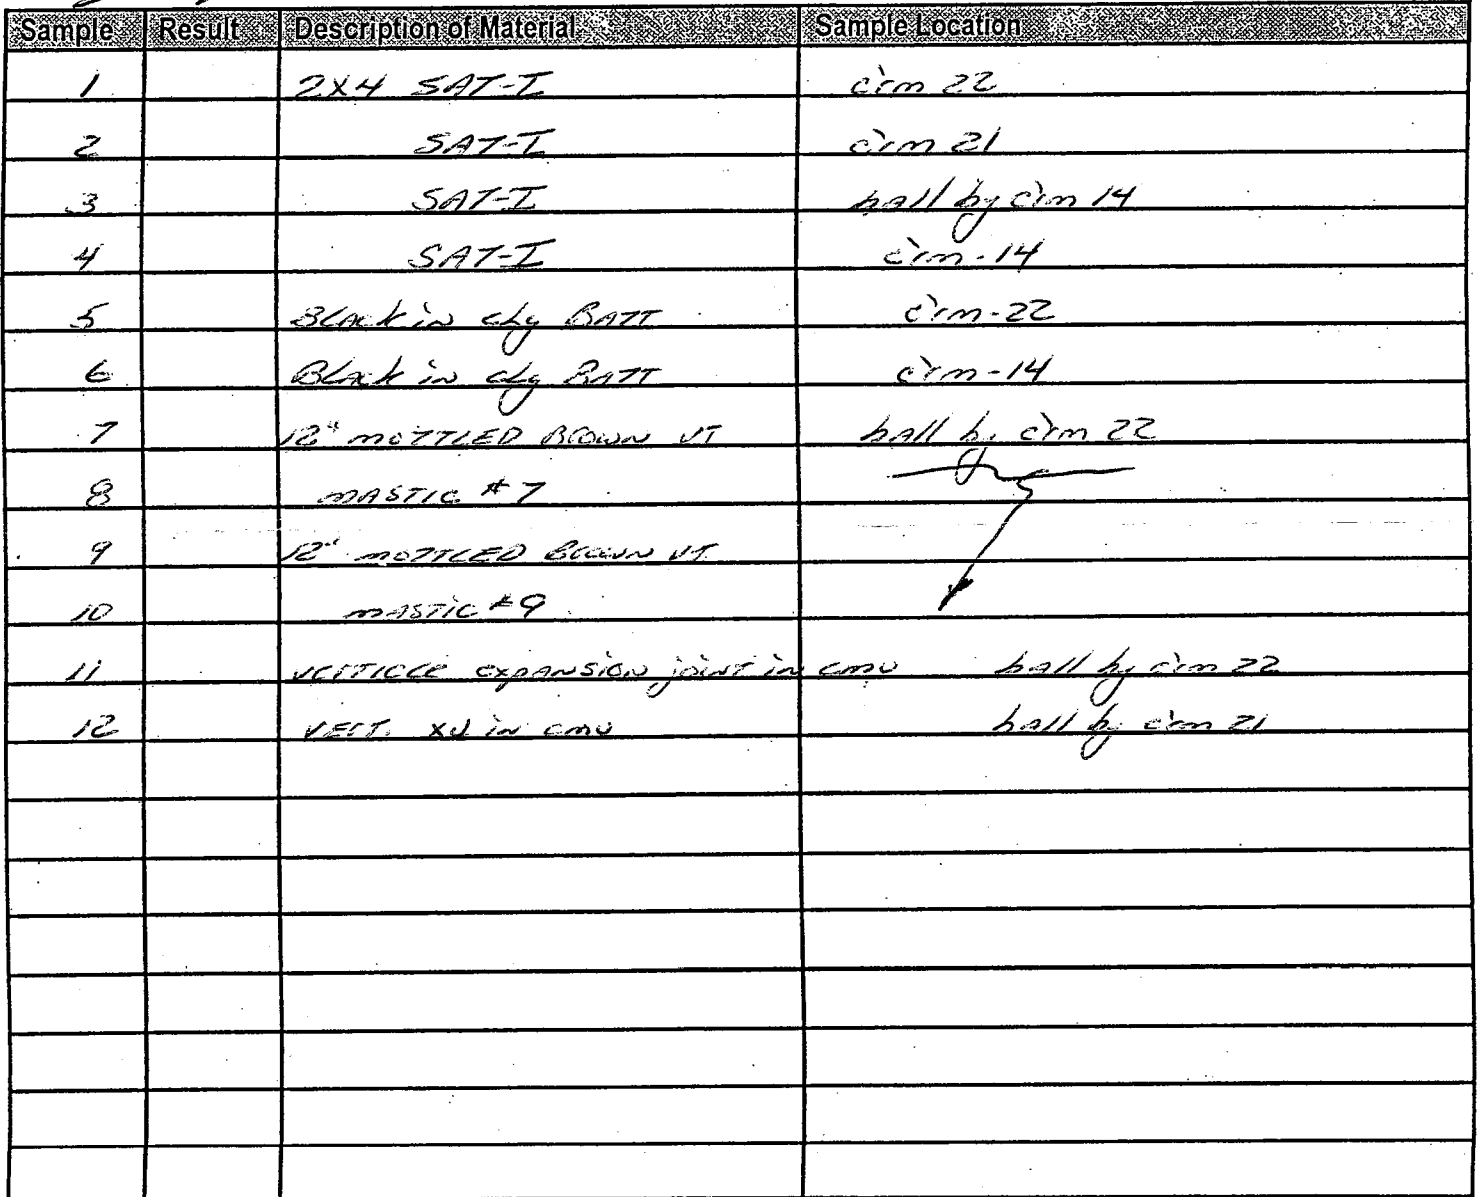 Sample Result Description of Material Sample Location
1 2X4 SAT-I c'rm 22
2 SAT-I c'rm 21
3 SAT-I hall by c'rm 14
4 SAT-I c'rm-14
5 Black in clg BATT c'rm-22
6 Black in clg BATT c'rm-14
7 12" MOTTLED BROWN VT hall by c'rm 22
8 MASTIC #7
9 12" MOTTLED BROWN VT
10 MASTIC #9
11 expansion joint in cmu hall by c'rm 22
12 VERT. XJ in cmu hall by c'rm 21